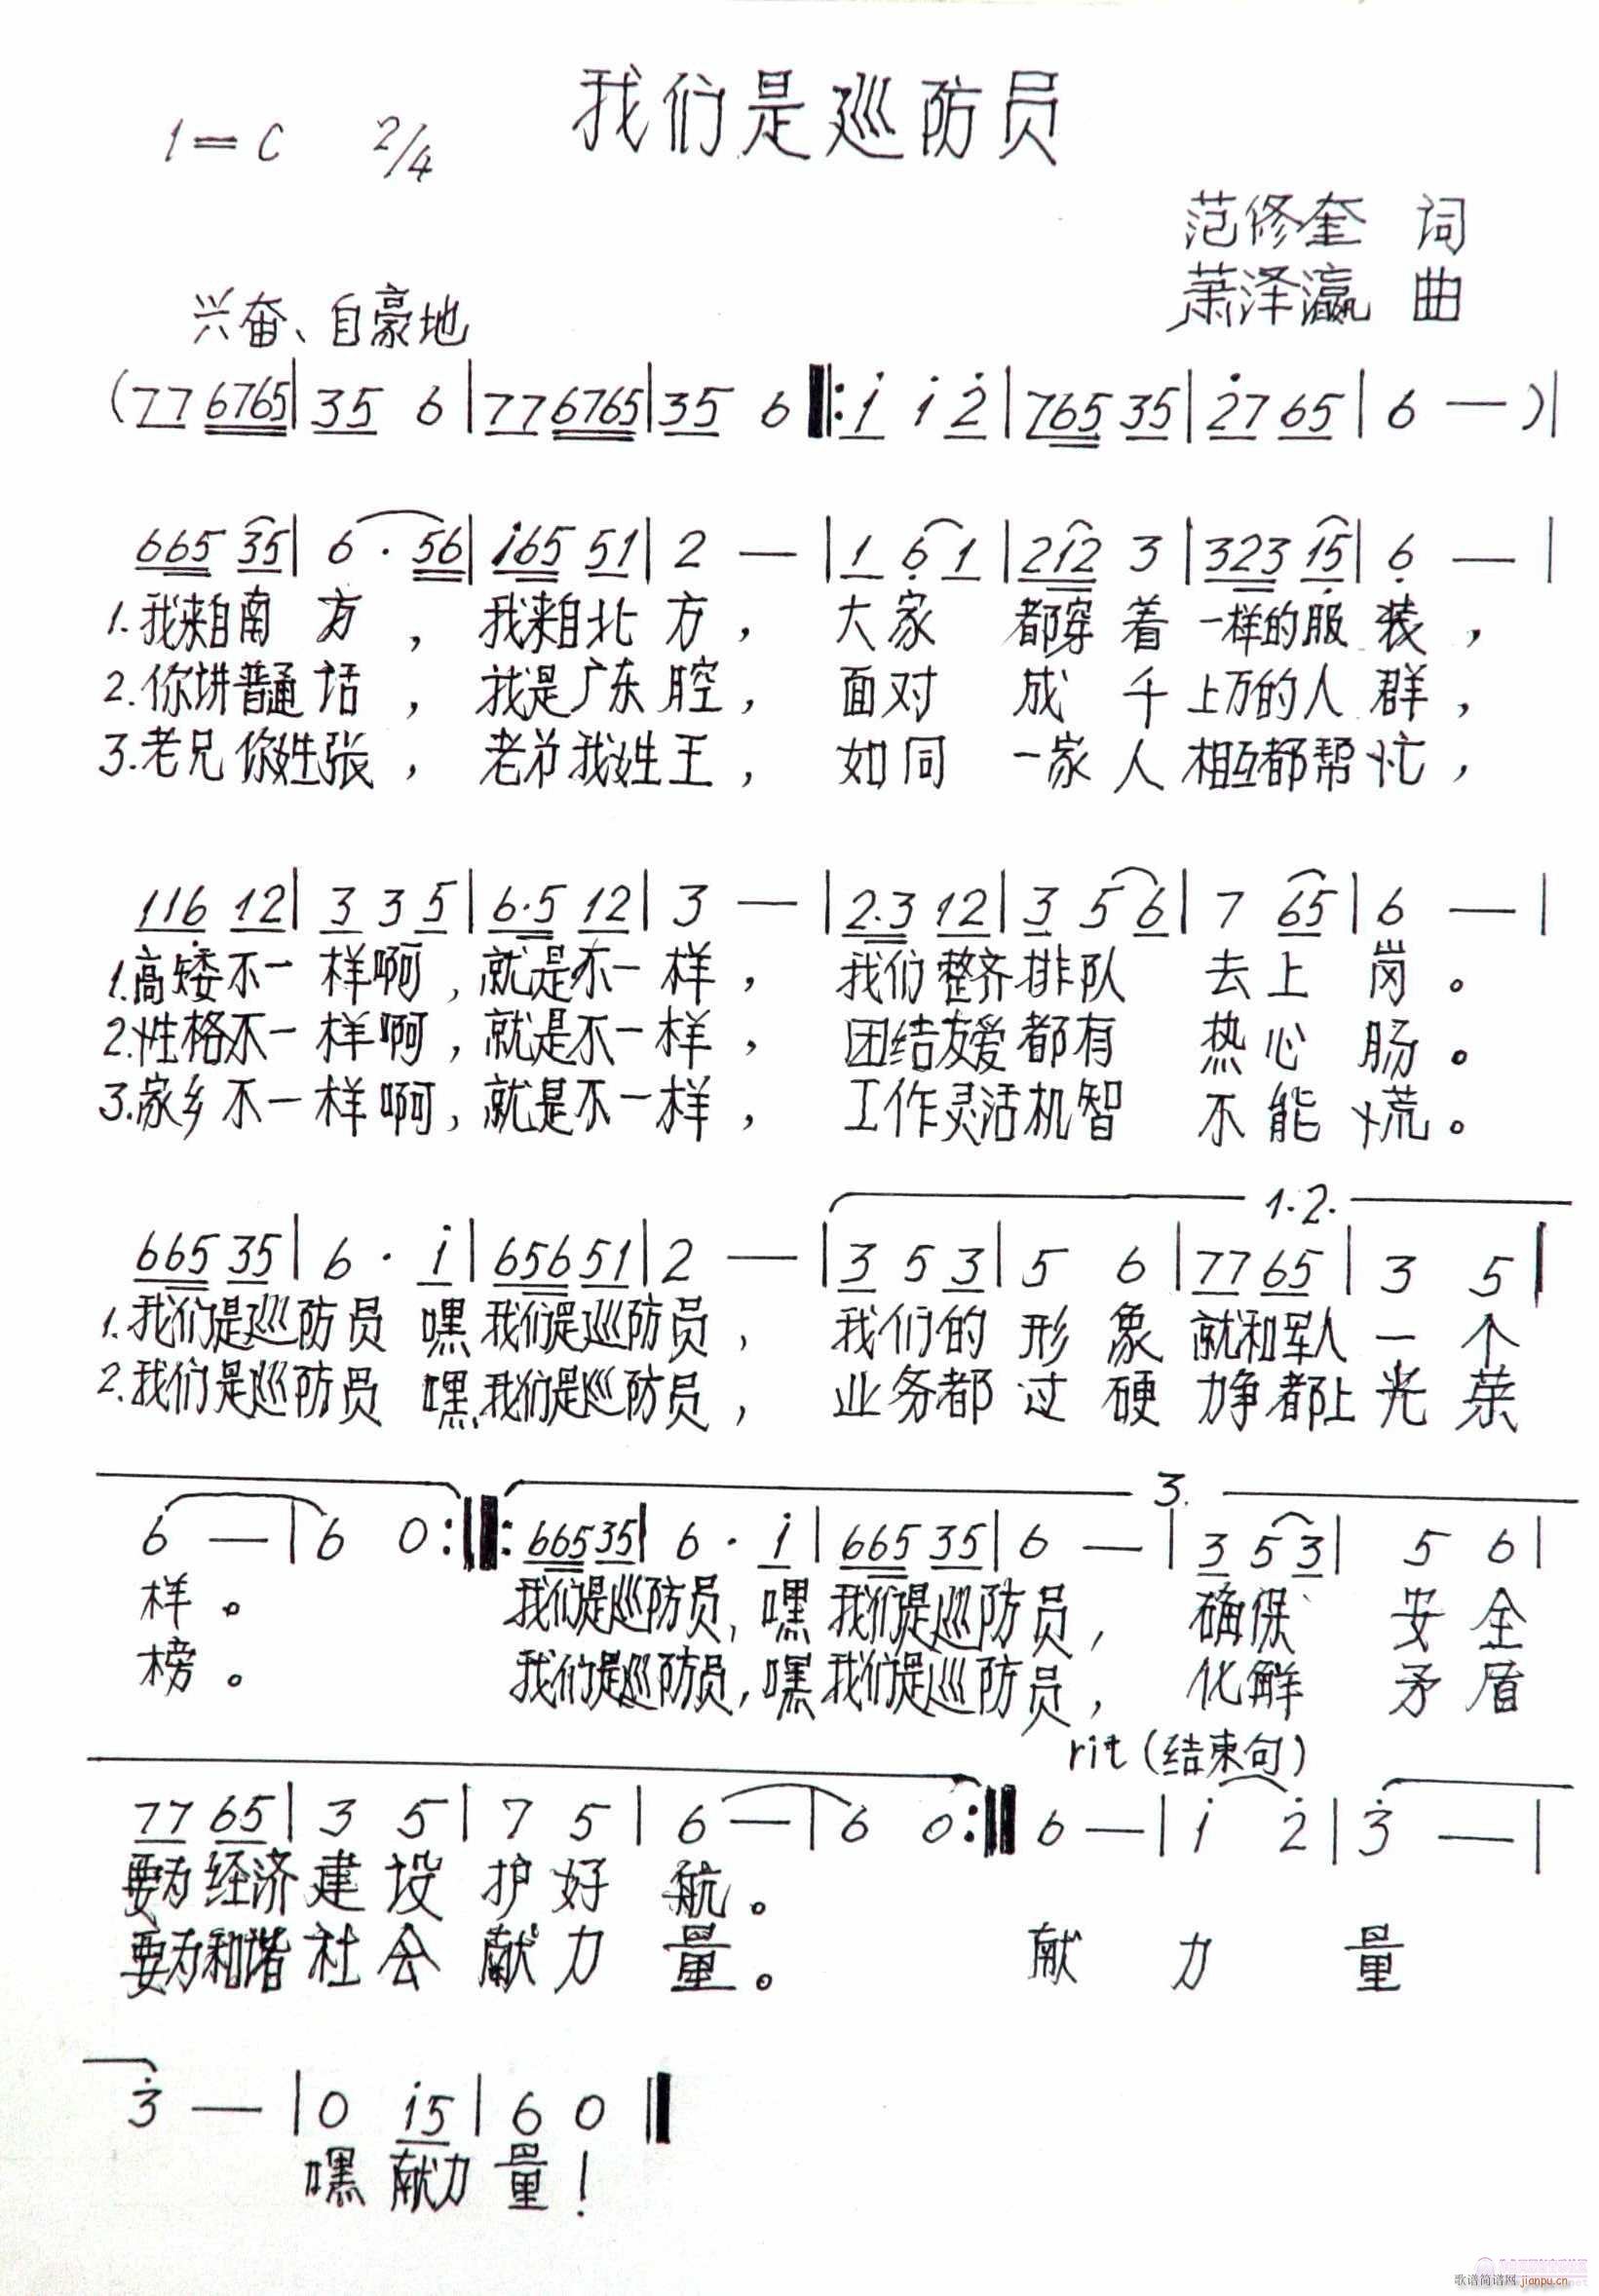 我们是巡防员
1=C 2/4
范修奎 词
萧泽瀛 曲
兴奋、自豪地
(77 6765|35 6|77 6765|35 6‖:i i 2|765 35|27 65|6 —)|
665 35|6·56|i65 51|2 —|1 6 1|212 3|323 15|6 —|
1.我来自南方,我来自北方,大家都穿着一样的服装,
2.你讲普通话,我是广东腔,面对成千上万的人群,
3.老兄你姓张,老弟我姓王,如同一家人相互都帮忙,
116 12|3 3 5|6·5 12|3 —|2·3 12|3 5 6|7 65|6 —|
1.高矮不一样啊,就是不一样,我们整齐排队去上岗。
2.性格不一样啊,就是不一样,团结友爱都有热心肠。
3.家乡不一样啊,就是不一样,工作灵活机智不能慌。
1.2.
665 35|6· i|656 51|2 —|3 5 3|5 6|77 65|3 5|
1.我们是巡防员 嘿我们是巡防员,我们的形象就和军人一个
2.我们是巡防员 嘿我们是巡防员,业务都过硬力争都上光荣
3.
6 —|6 0:‖:665 35|6· i|665 35|6 —|3 5 3|5 6|
样。 我们是巡防员,嘿我们是巡防员,确保安全
榜。 我们是巡防员,嘿我们是巡防员,化解矛盾
rit(结束句)
77 65|3 5|7 5|6 —|6 0:‖6 —|i 2|3 —|
要为经济建设护好航。
要为和谐社会献力量。 献力量
3 —|0 i5|6 0‖
嘿献力量!
歌谱简谱网 jianpu.cn